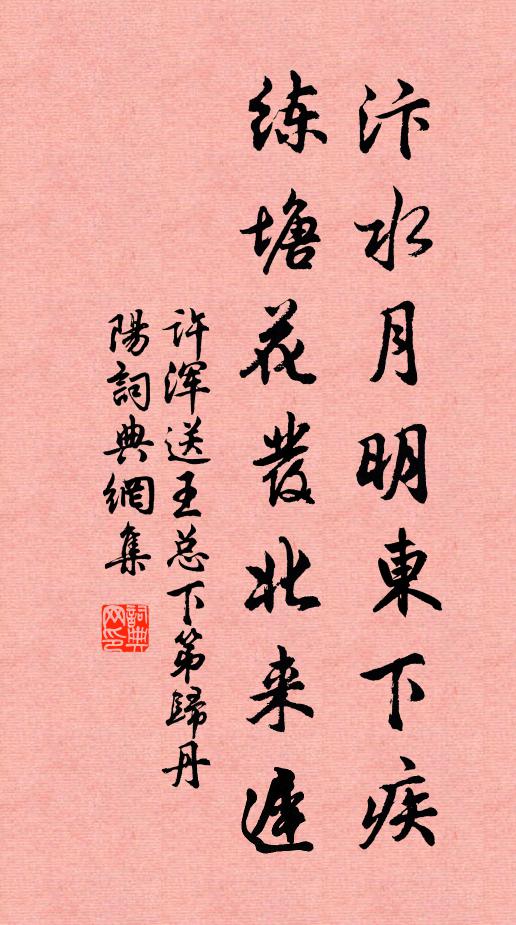 汴水月明東下疾
练塘花發北来遲
许浑送王总下第歸丹
陽詞典網集
詞典网印